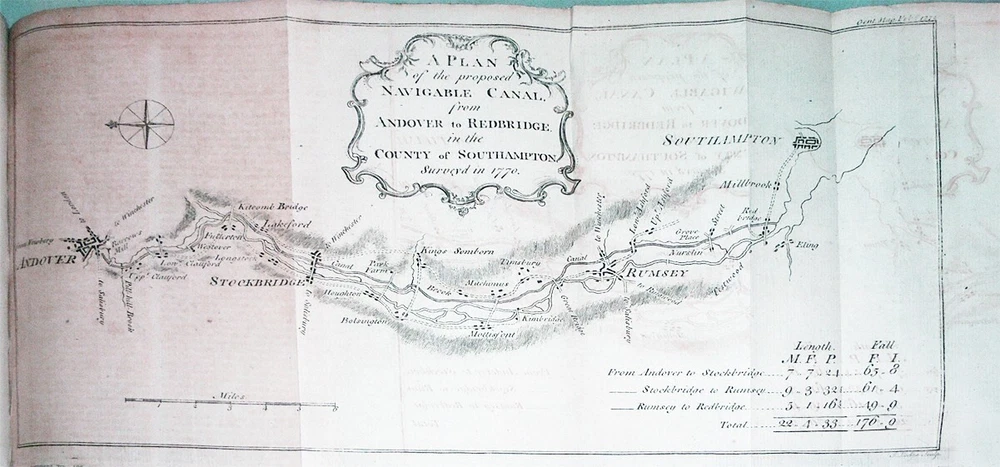 A PLAN
of the proposed
NAVIGABLE CANAL,
from
ANDOVER to REDBRIDGE
in the
COUNTY of SOUTHAMPTON
Surveyd in 1770.
Gent. Mag.
SOUTHAMPTON
Millbrook
Red
bridge
Eling
to Winchester
ANDOVER
Mill
to Salisbury
Pill hill Brook
Up.r Clatford
Low.r Clatford
Westover
Fullerton
Kitcomb Bridge
Lakeford
Longstock
STOCKBRIDGE
to Winchester
to Salisbury
Canal
Houghton
Park
Farm
Kings Somborn
Bossington
Brook
Machinus
Timsbury
Mottisfont
Kimbridge
Canal
Great Bridge
to Winchester
RUMSEY
to Salisbury
Low.r Ashford
Up.r Ashford
Grove
Place
Street
Nurslin
Testwood
Miles
Length. Fall
M. F. P. F. I.
From Andover to Stockbridge 7 - 7 - 24 63 - 8
Stockbridge to Rumsey 9 - 3 - 32 61 - 4
Rumsey to Redbridge 5 - 1 - 16 49 - 9
Total 22 - 4 - 33 176 - 9